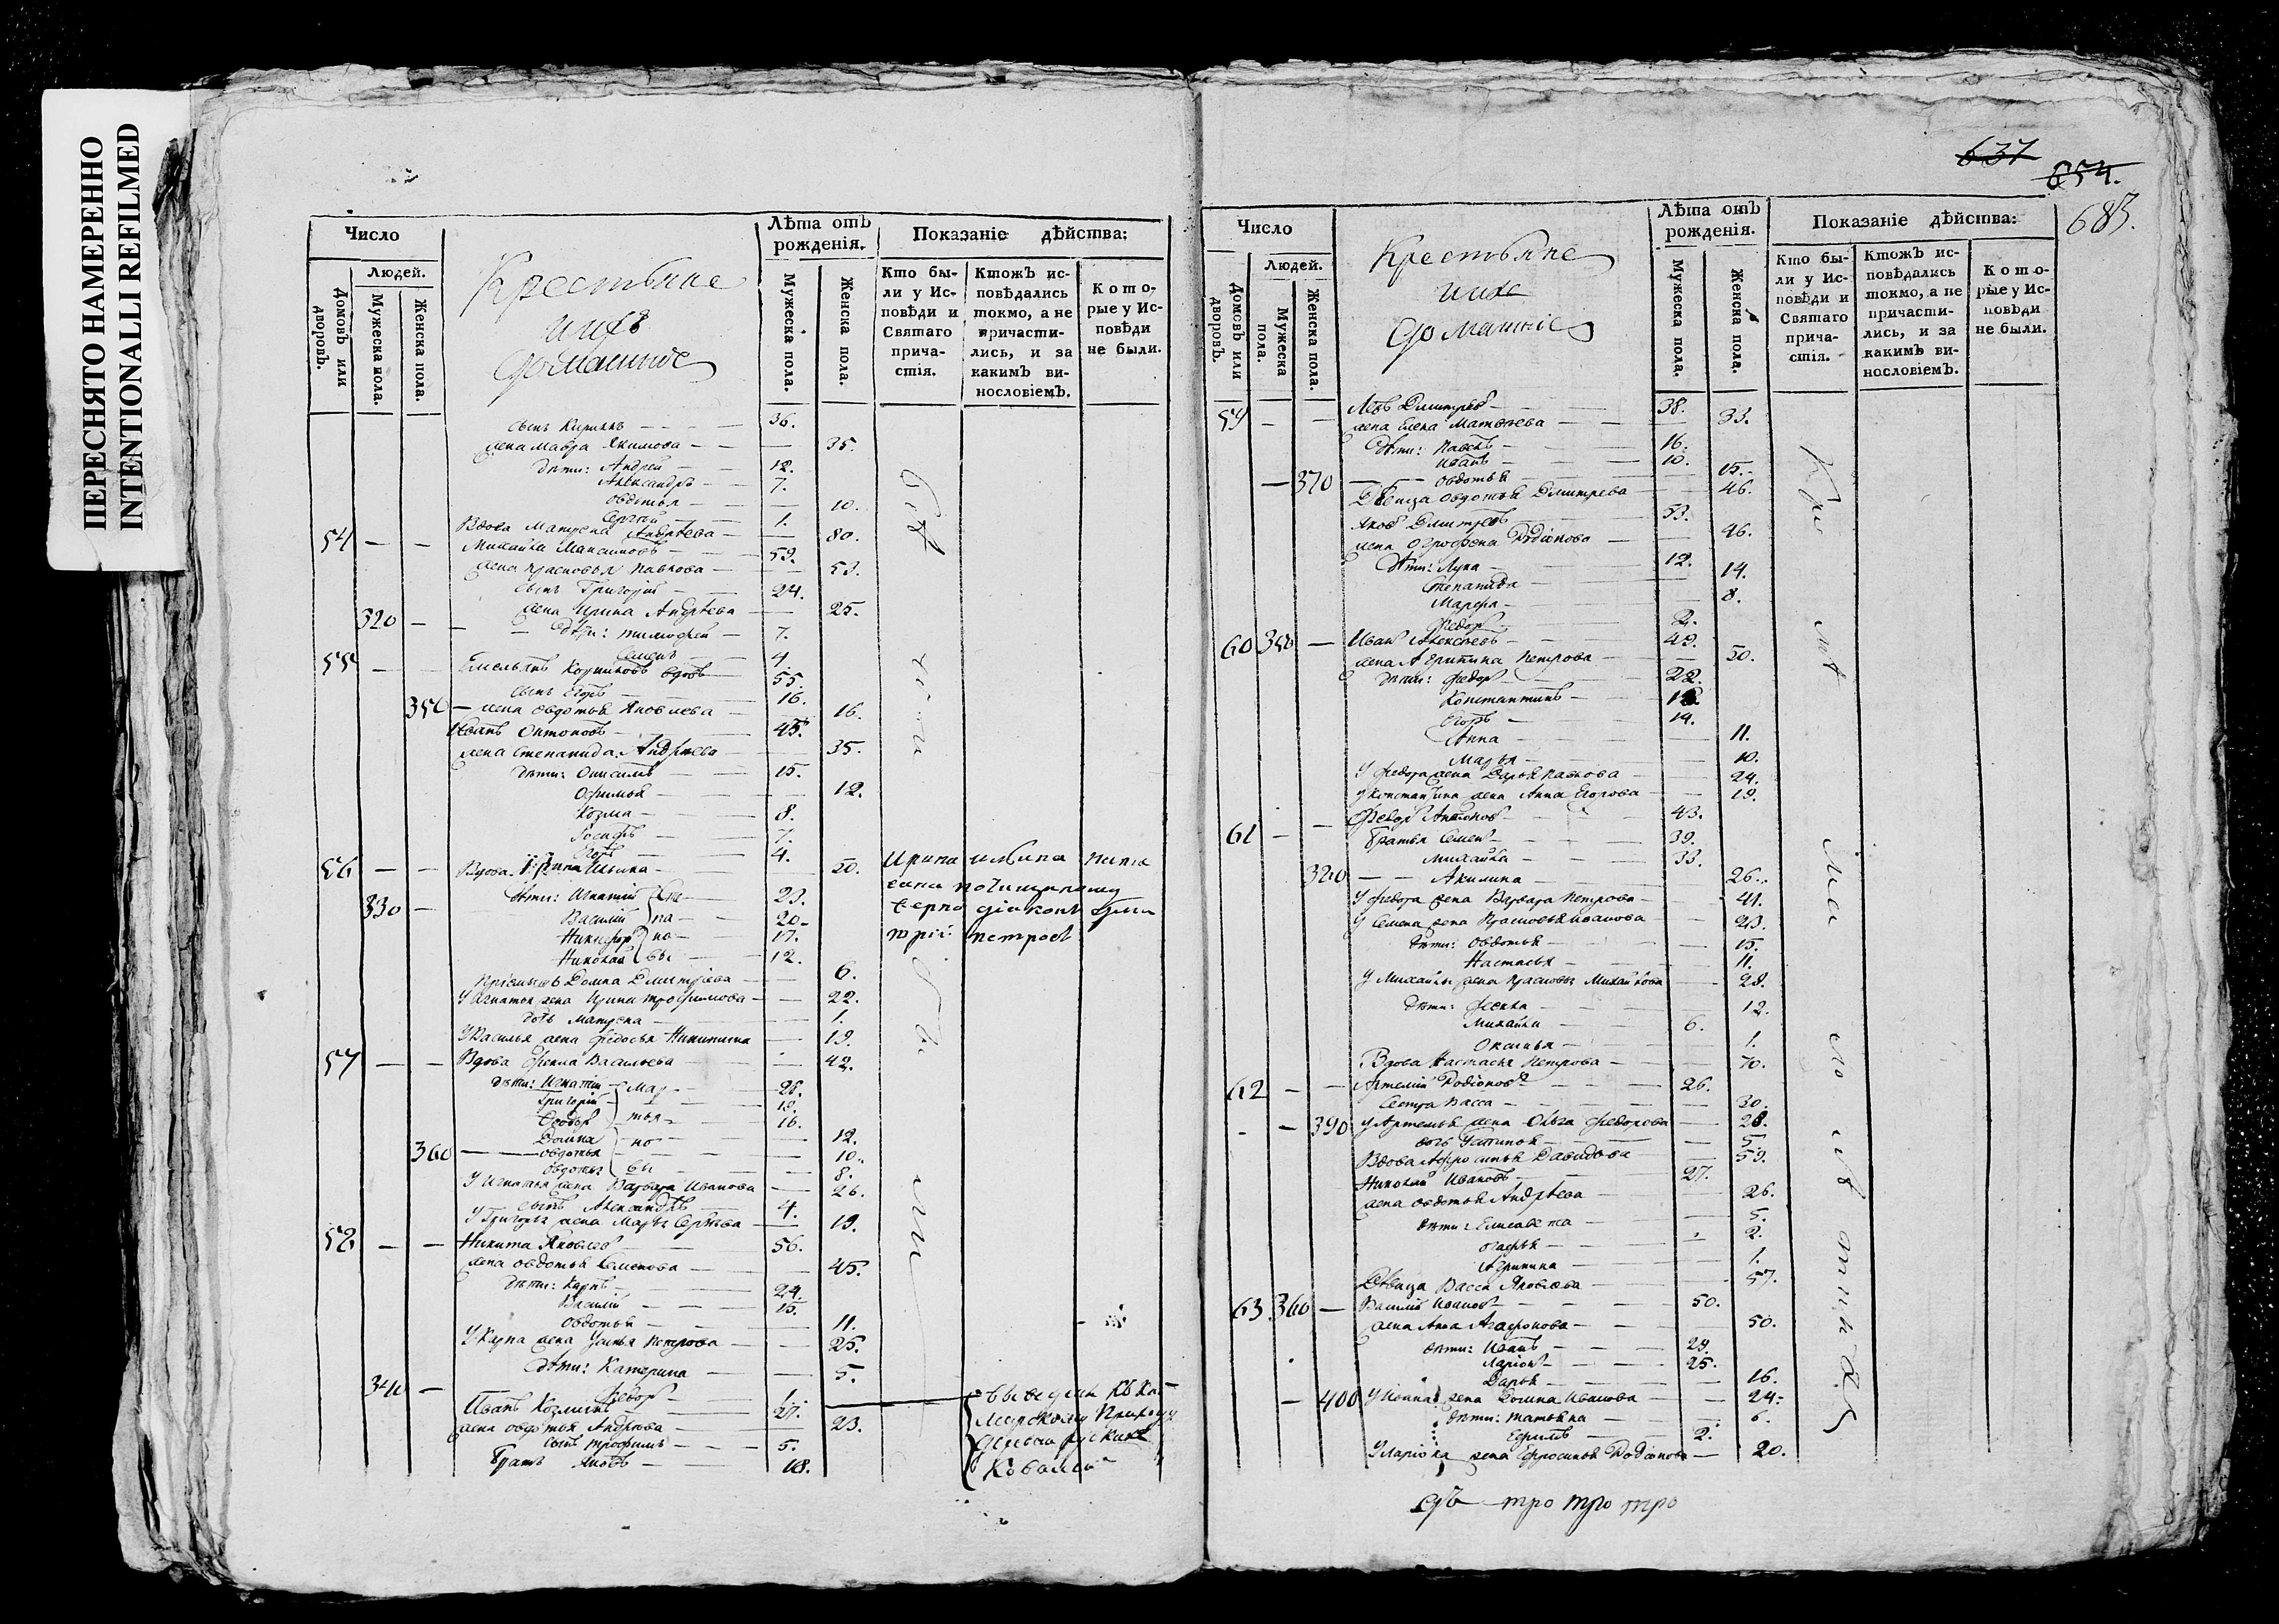 ПЕРЕСНЯТО НАМЕРЕННО
INTENTIONALLI REFILMED
Число
Людей.
Домовъ или дворовъ.
Мужеска пола.
Женска пола.
Крестьяне
ихъ
домашние
Лѣта отъ рожденія.
Мужеска пола.
Женска пола.
Показаніе дѣйства:
Кто были у Исповѣди и Святаго причастія.
Ктожъ исповѣдались токмо, а не причастились, и за какимъ винословіемъ.
Которые у Исповѣди не были.
сынъ Кирилъ 36.
жена Мавра Якимова 35.
дѣти: Андрей 12.
Александръ 7.
Овдотья 10.
Сергѣй 1.
54 Вдова Матрена Андрѣева 80.
Михайла Максимовъ 59.
жена Прасковья Павлова 53.
сынъ Григорій 24.
320 жена Ирина Андрѣева 25.
дѣти: Тимофей 7.
Семенъ 4.
55 Емельянъ вдовъ 55.
сынъ Егоръ 16.
350 жена Овдотья Яковлева 16.
Иванъ Онтоновъ 45.
жена Степанида Андрѣева 35.
дѣти: Онисимъ 15.
Офимья 12.
Козма 8.
Іосифъ 7.
Егоръ 4.
56 Вдова Ирина Ильина 50.
дѣти: Игнатій 23.
330 Василій 20.
Никифоръ 17.
Николай 12.
Домна Дмитріева 6.
У Игнатья жена Ирина Трофимова 22.
дочь Матрена 1.
У Василья жена Федосья Никитина 19.
57 Вдова Фекла Васильева 42.
дѣти: Игнатій 26.
Григорій 19.
Федоръ 16.
Домна 12.
360 Овдотья 10.
Овдотья 8.
У Игнатья жена Варвара Иванова 26.
сынъ Александръ 4.
У Григорья жена Марья Сергѣева 19.
58 Никита Яковлевъ 56.
жена Овдотья Семенова 45.
дѣти: Карпъ 24.
Василій 15.
Овдотья 11.
У Карпа жена Улита Петрова 25.
дѣти: Катерина 5.
340 Федоръ 1.
Иванъ Козминъ 27.
жена Овдотья Андрѣева 23.
сынъ Трофимъ 5.
Братъ Яковъ 18.
637
654.
683.
Число
Людей.
Домовъ или дворовъ.
Мужеска пола.
Женска пола.
Крестьяне
ихъ
домашніе
Лѣта отъ рожденія.
Мужеска пола.
Женска пола.
Показаніе дѣйства:
Кто были у Исповѣди и Святаго причастія.
Ктожъ исповѣдались токмо, а не причастились, и за какимъ винословіемъ.
Которые у Исповѣди не были.
59 Левъ Дмитревъ 38.
жена Елена Матвѣева 33.
дѣти: Павелъ 16.
Иванъ 10.
370 Овдотья 15.
Дѣвица Овдотья Дмитрева 46.
Яковъ Дмитревъ 53.
жена Огрофена Родіонова 46.
дѣти: Лука 12.
Степанида 14.
Марфа 8.
Федоръ 2.
60 350 Иванъ Алексѣевъ 49.
жена Агрипина Петрова 50.
дѣти: Федоръ 22.
Константинъ
Егоръ 14.
Анна 11.
Марья 10.
У Федора жена Дарья Павлова 24.
У Константина жена Анна Егорова 19.
61 Федоръ Антоновъ 43.
Братья Семенъ 39.
Михайла 33.
380 Акилина 26.
У Федора жена Варвара Петрова 41.
У Семена жена Прасковья Иванова 43.
дѣти: Овдотья 15.
Настасья 11.
У Михайлы жена Прасковья Михайлова 28.
дѣти: Фекла 12.
Михайла 6.
Оксинья 1.
Вдова Настасья Петрова 70.
62 Артемій Родіоновъ 26.
Сестра Васса 30.
390 У Артемья жена Ольга Федорова 28.
дочь Устинья 5.
Вдова Афросинья Давыдова 59.
Николай Ивановъ 27.
жена Овдотья Андрѣева 26.
дѣти: Елисавета 5.
Огафья 2.
Агрипина 1.
Дѣвица Васса Яковлева 57.
63 360 Василій Ивановъ 50.
жена Анна Агафонова 50.
дѣти: Иванъ 29.
Ларіонъ 25.
Дарья 16.
400 У Ивана жена Домна Иванова 24.
дѣти: Татьяна 6.
Ефимъ 2.
У Ларіона жена Ефросинья Родіонова 20.